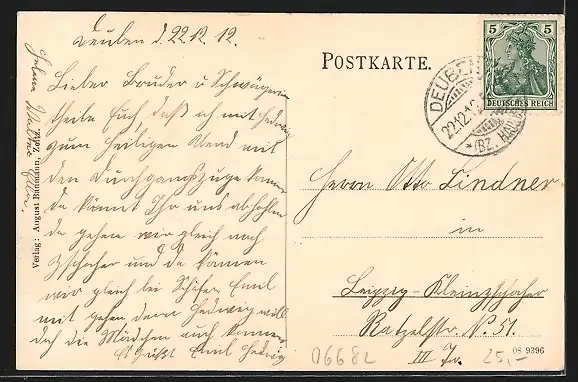 Deuben d. 22.12.12.
Lieber Bruder u Schwägerin
theile Euch, daß ich mit Hedwig
zum Heiligen Abend mit
den Durchgangszuge komme
da könnt Ihr uns abholen
da gehen wir gleich nach
Zschocher und da können
wir gleich bei Schäfer Emil
mit gehen denn Hedwig will
doch die Mädchen auch kennen
Es Grüßt Emil Hedwig
Verlag: August Bittmann, Zeitz.
POSTKARTE.
5 5
DEUTSCHES REICH
DEUBEN
22.12.12
* (BZ. HALLE)
Herrn Otto Lindner
in
Leipzig-Kleinzschocher
Ratzelstr. N. 51.
III Tr.
06682
25,-
08 9396